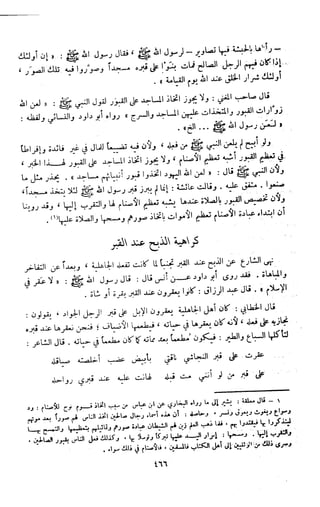 ـ رأتاها بالحبشة فيها تصاوير ـ لرسول الله ﷺ ، فقال رسول الله ﷺ : « إن أولئك
إذا كان فيهم الرجل الصالح فمات بَنَوْا على قبره مسجداً وصوّروا فيه تلك الصوَر ،
أولئك شرار الخلق عند الله يوم القيامة » .
قال صاحب المغني : ولا يجوز اتخاذ المساجد على القبور لقول النبي ﷺ : « لعن الله
زوّارات القبور والمتخذات عليهن المساجد والسرج » رواه أبو داود والنسائي ولفظه :
« لَعَنَ رسول الله ﷺ ... الخ » .
ولو أبيح لم يلعن النبي ﷺ من فعله ، ولأن فيه تضييعاً للمال في غير فائدة وإفراطاً
في تعظيم القبور أشبه تعظيم الأصنام ، ولا يجوز اتخاذ المساجد على القبور لهذا الخبر ،
ولأن النبي ﷺ قال : « لعن الله اليهود اتخذوا قبور أنبيائهم مساجد » . يحذر مثل ما
صنعوا . متفق عليه . وقالت عائشة : إنما لم يبرز قبر رسول الله ﷺ لئلا يتخذ مسجداً،
ولأن تخصيص القبور بالصلاة عندها يشبه تعظيم الأصنام لها والتقرب إليها ، وقد روينا
أن ابتداء عبادة الأصنام تعظيم الأموات باتخاذ صورهم ومسحها والصلاة عليها(١).
كراهية الذبح عند القبر
نهى الشارع عن الذبح عند القبر تجنباً لما كانت تفعله الجاهلية ، وبعداً عن التفاخر
والمباهاة . فقد روى أبو داود عن أنس قال : قال رسول الله ﷺ : « لا عقر في
الإسلام » . قال عبد الرزاق : كانوا يعقرون عند القبر بقرة أو شاة .
قال الخطابي : كان أهل الجاهلية يعقرون الإبل على قبر الرجل الجواد ، يقولون :
نجازيه على فعله ، لأنه كان يعقرها في حياته ، فيطعمها الأضياف ؛ فنحن نعقرها عند قبره
لتأكلها السباع والطير ؛ فيكون مطعماً بعد مماته كما كان مطعماً في حياته . قال الشاعر :
عقرت على قبر النجاشي ناقتي بأبيض عضب أخلصته صياقله
على قبر من لو أنني مت قبله لهانت عليه عند قبري رواحله
١ ـ قال معلقه : يشير إلى ما رواه البخاري عن ابن عباس من سبب اتخاذ قوم نوح للأصنام : ود
وسواع ويغوث ويعوق ونسر ، وحاصله : أن هذه أسماء رجال صالحين اتخذ الناس لهم صوراً بعد موتهم
ليتذكروا بها فيقتدوا بهم ، فلما ذهب العلم زين لهم الشيطان عبادة صورهم وتماثيلهم بتعظيمها والتمسح بها
والتقرب إليها . ومسحها : إمرار اليد عليها تبركاً وتوسلاً بها ، وكذلك فعل الناس بقبور الصالحين .
وسرى ذلك من الوثنيين إلى أهل الكتاب فالمسلمين ، فالأصنام في ذلك سواء .
٤٦٦